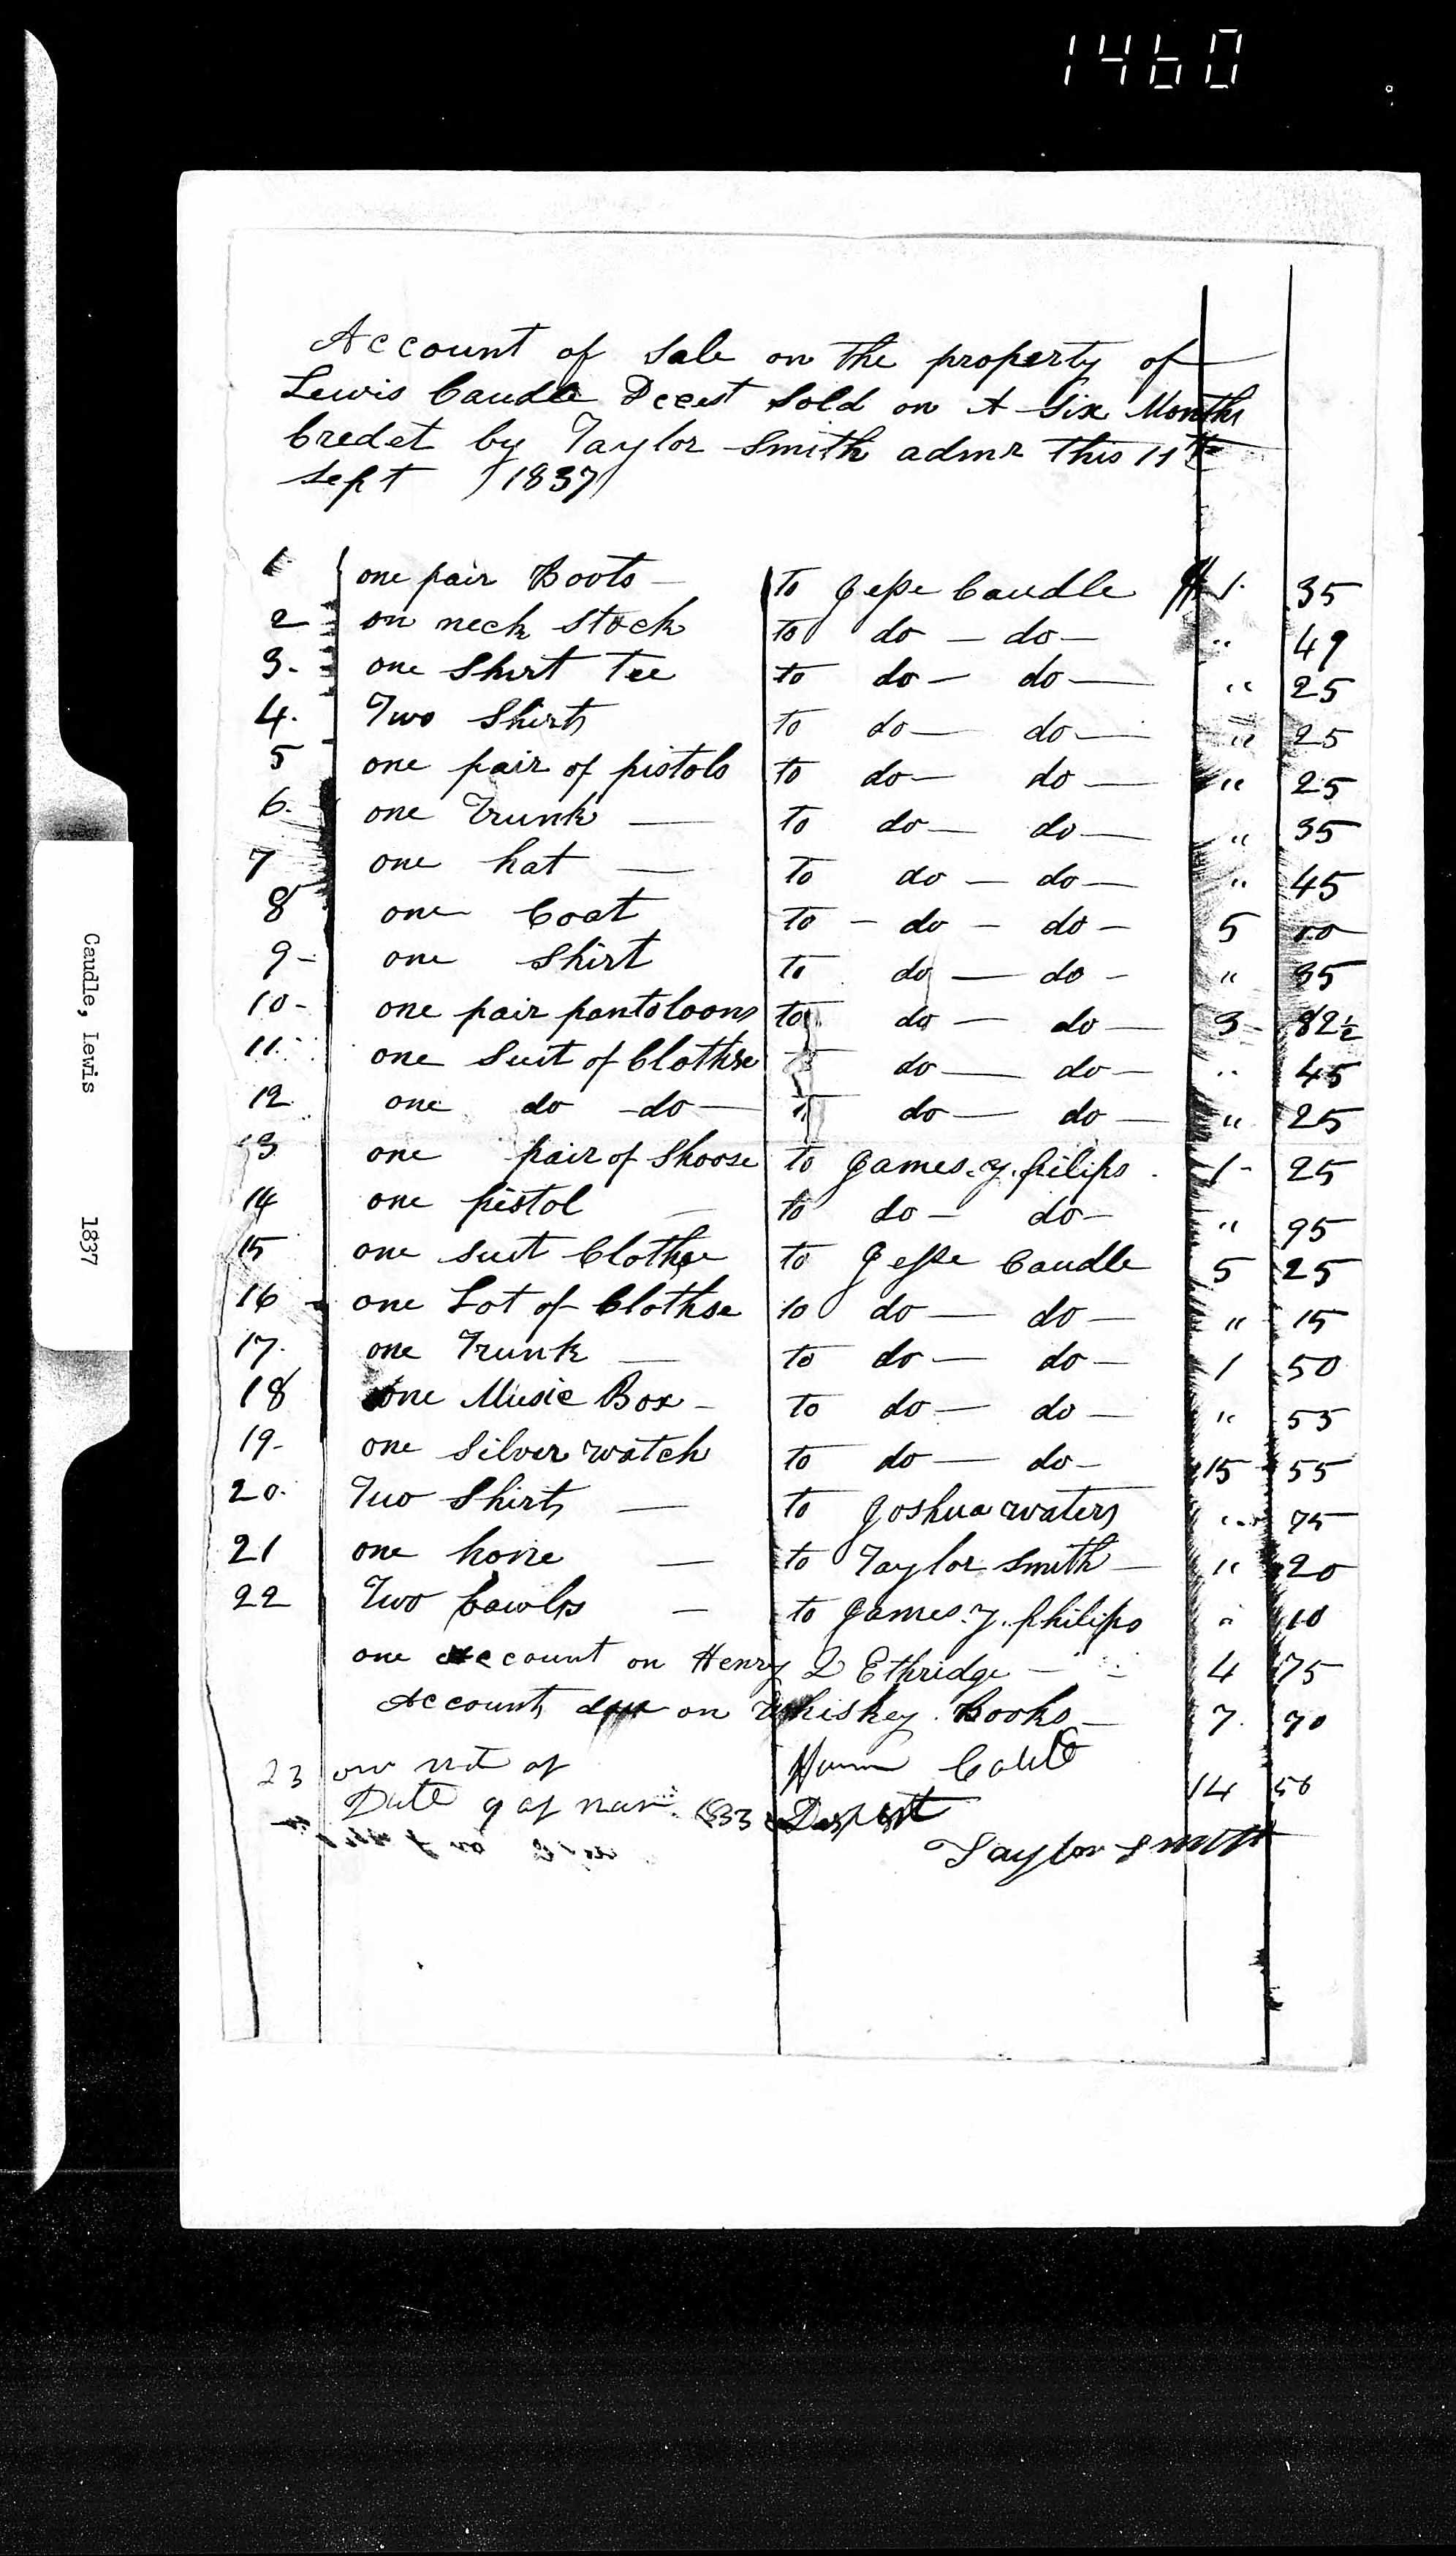 1460
Caudle, Lewis 1837
Account of Sale on the property of
Lewis Caudle Deest Sold on A Six Months
Credet by Taylor Smith admr This 11th
Sept 1837
1 one pair Boots — to Jesse Caudle $ 1. 35
2 on neck Stock to do — do — " 49
3. one Shirt Tee to do — do — " 25
4. Two Shirts to do — do — " 25
5 one pair of pistols to do — do — " 25
6. one Trunk — to do — do — " 35
7 one hat — to do — do — " 45
8 one Coat to — do — do — 5 00
9 — one Shirt to do — do — " 35
10 — one pair pantoloons to do — do — 3 — 82½
11. one Suit of Clothse do — do — " 45
12 one do — do — do — do — " 25
13 one pair of Shoose to James. y. pilips. 1 — 25
14 one pistol — to do — do — " 95
15 one Suit Clothse to Jesse Caudle 5 25
16 one Lot of Clothse to do — do — " 15
17. one Trunk — to do — do — 1 50
18 one Music Box — to do — do — " 55
19 — one Silver watch to do — do — 15 55
20. Two Shirts — to Joshua waters " 75
21 one hone — to Taylor Smith — " 20
22 Two — to James. y. philips " 10
one account on Henry Ethridge — 4 75
Account on Whiskey Books — 7. 70
23 of 14 50
Date 9 of
Taylor Smith